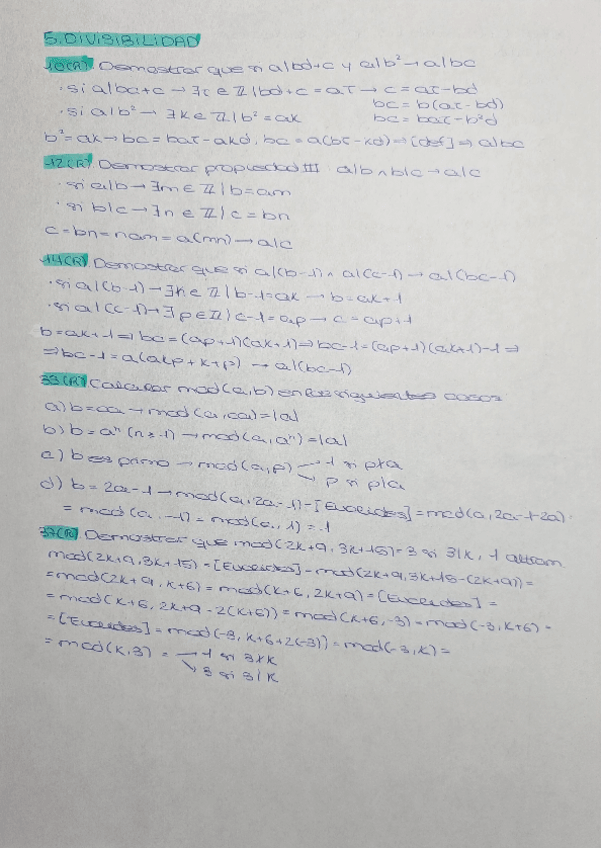 5. DIVISIBILIDAD
10(R) Demostrar que si a|bd+c y a|b² → a|bc
· si a|bc+c → ∃r ∈ ℤ | bd+c = ar → c = ar-bd
bc = b(ar-bd)
· si a|b² → ∃k ∈ ℤ | b² = ak
bc = bar-b²d
b² = ak → bc = bar-akd, bc = a(br-kd) ⇒ [def] ⇒ a|bc
12(R) Demostrar propiedad III a|b ∧ b|c → a|c
· si a|b → ∃m ∈ ℤ | b = am
· si b|c → ∃n ∈ ℤ | c = bn
c = bn = nam = a(mn) → a|c
14(R) Demostrar que si a|(b-1) ∧ a|(c-1) → a|(bc-1)
· si a|(b-1) → ∃k ∈ ℤ | b-1 = ak → b = ak+1
· si a|(c-1) → ∃p ∈ ℤ | c-1 = ap → c = ap+1
b = ak+1 ⇒ bc = (ap+1)(ak+1) ⇒ bc-1 = (ap+1)(ak+1)-1 ⇒
⇒ bc-1 = a(akp+k+p) → a|(bc-1)
33(R) Calcular mcd(a,b) en los siguientes casos
a) b = ca → mcd(a,ca) = |a|
b) b = aⁿ (n≥1) → mcd(a,aⁿ) = |a|
c) b es primo → mcd(a,p) → 1 si p∤a
↘ p si p|a
d) b = 2a-1 → mcd(a,2a-1) = [Euclides] = mcd(a, 2a-1-2a) =
= mcd(a,-1) = mcd(a,1) = 1
37(R) Demostrar que mcd(2k+9, 3k+15) = 3 si 3|k, 1 
mcd(2k+9, 3k+15) = [Euclides] = mcd(2k+9, 3k+15-(2k+9)) =
= mcd(2k+9, k+6) = mcd(k+6, 2k+9) = [Euclides] =
= mcd(k+6, 2k+9-2(k+6)) = mcd(k+6,-3) = mcd(-3,k+6) =
= [Euclides] = mcd(-3, k+6+2(-3)) = mcd(-3,k) =
= mcd(k,3) = → 1 si 3∤k
↘ 3 si 3|k